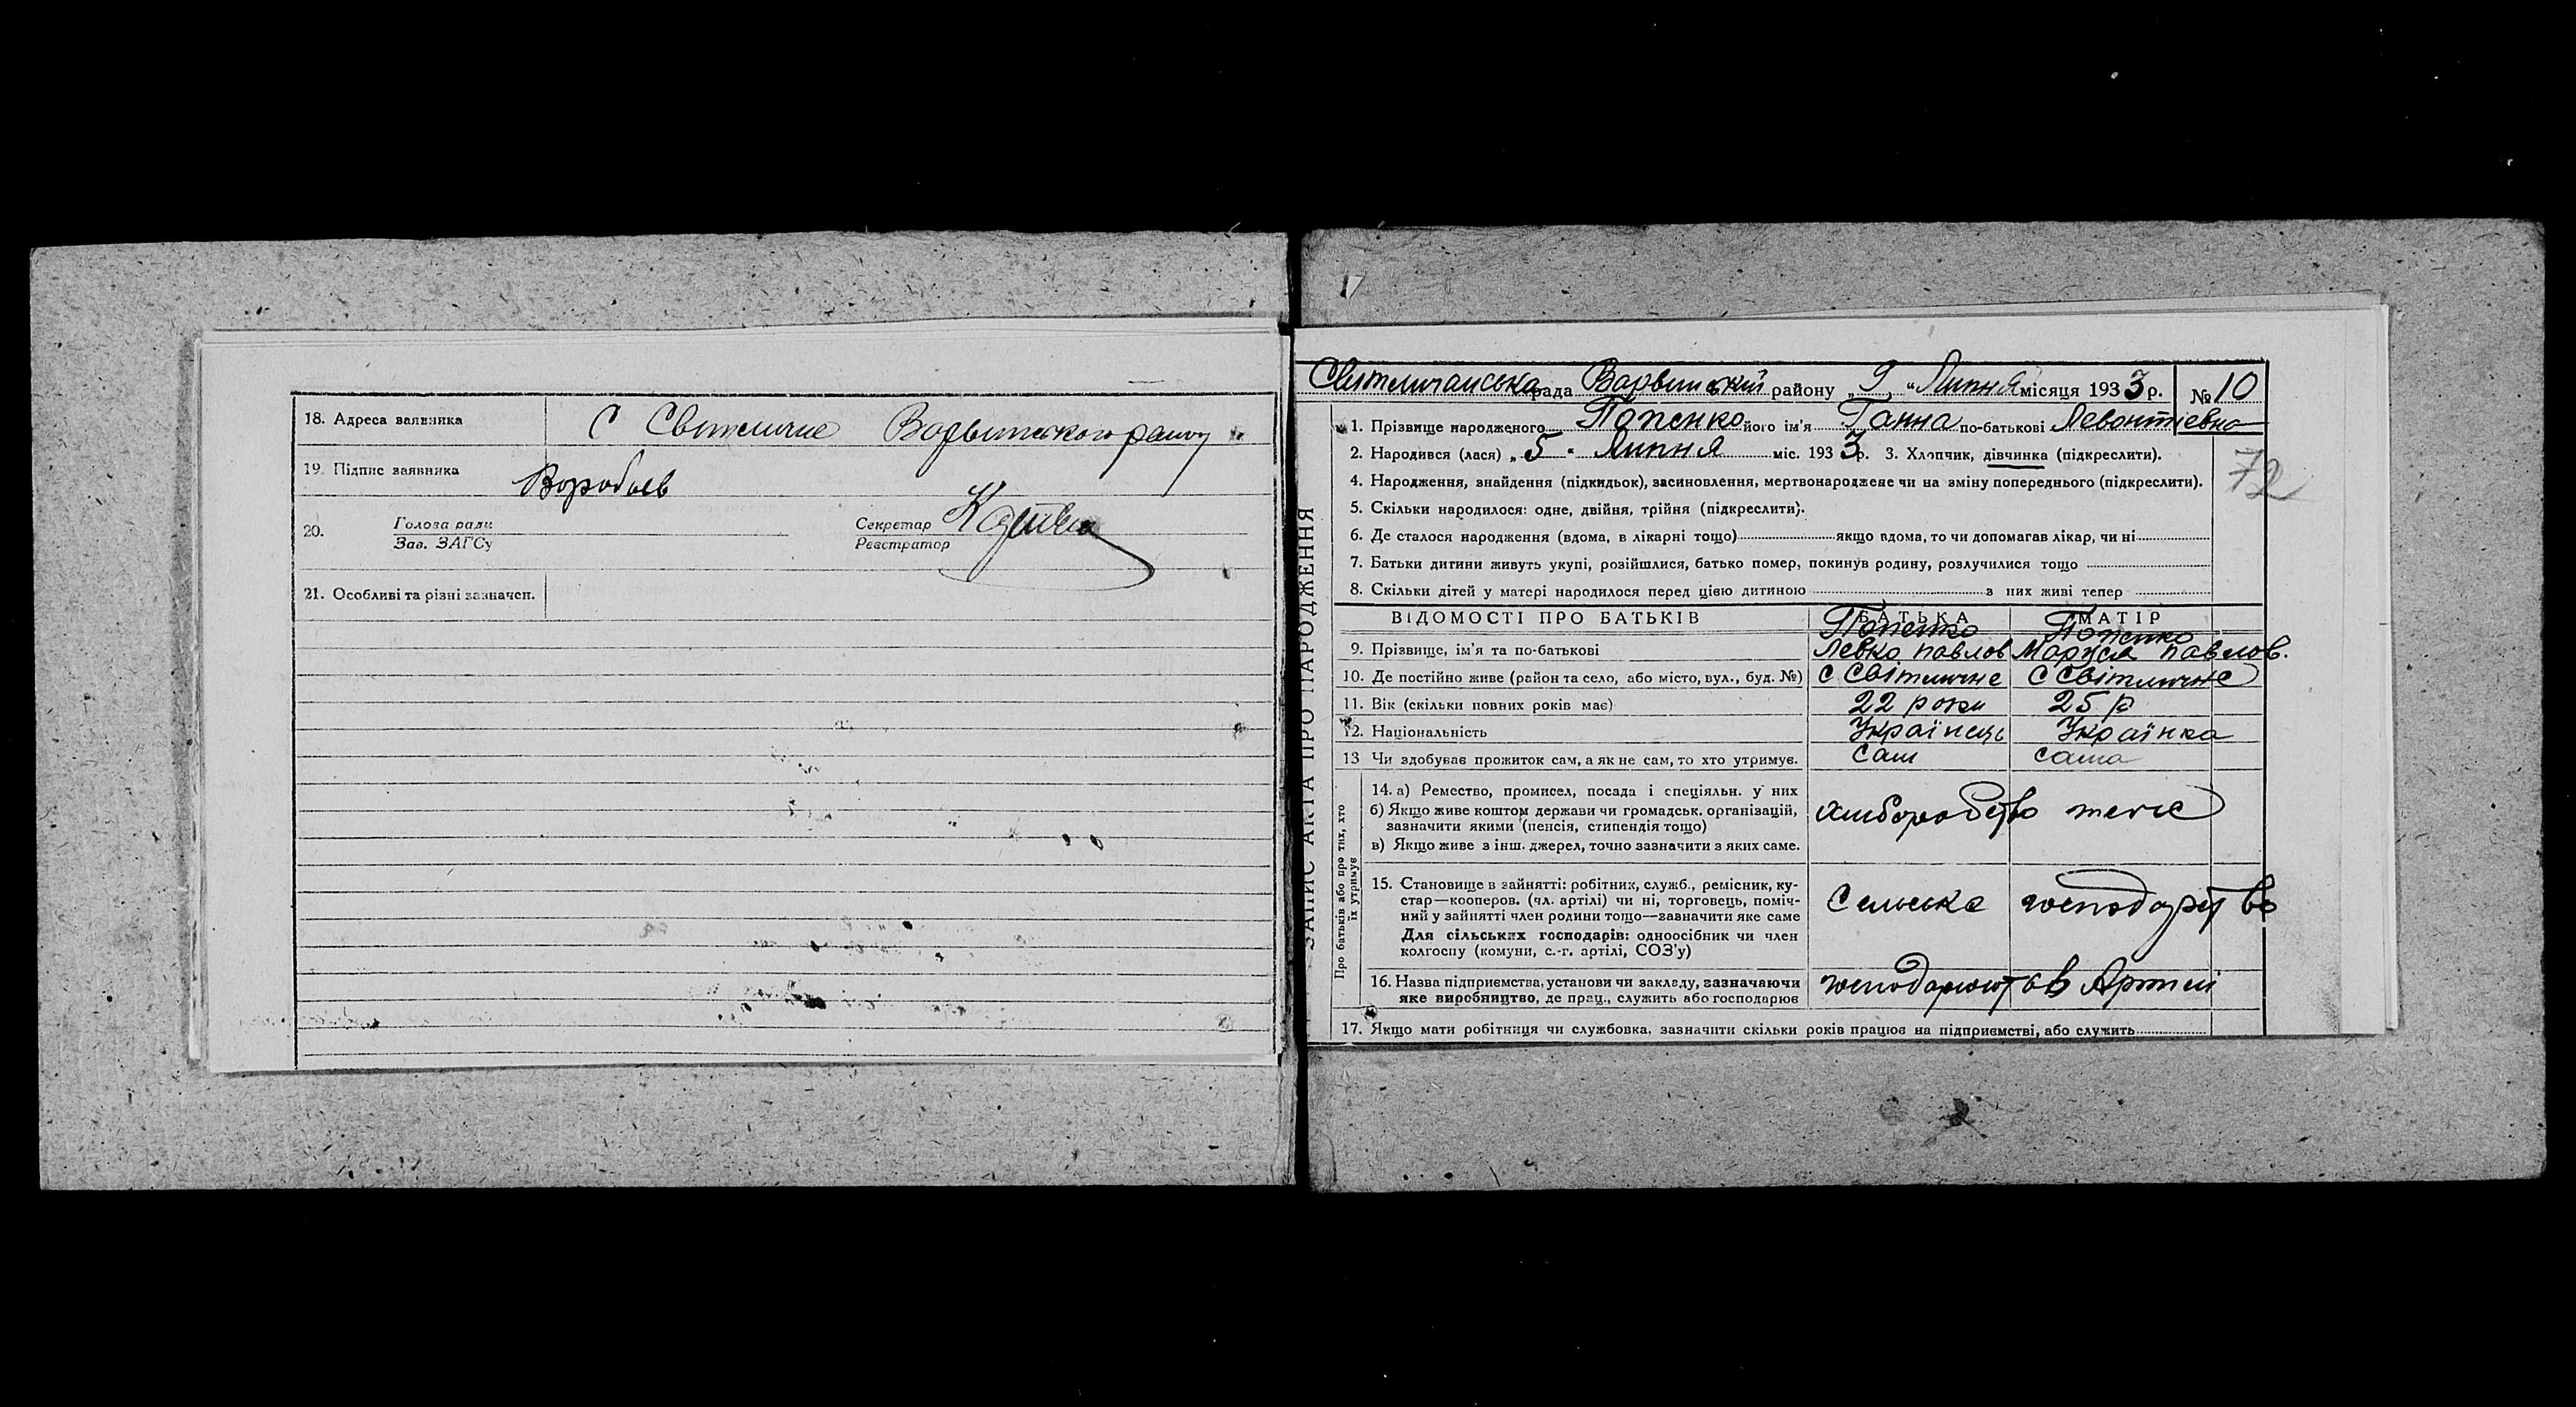 18. Адреса заявника С Світличне Варвинського району
19. Підпис заявника Воробьев
20. Голова ради Секретар
Зав. ЗАГСу Реєстратор
21. Особливі та різні зазначен.
ЗАПИС АКТА ПРО НАРОДЖЕННЯ
Світличанська рада Варвинській району „ 9 “ Липня місяця 1933 р. № 10
1. Прізвище народженого Попенко його ім'я Ганна по-батькові Левонтіевна
2. Народився (лася) „ 5 “ Липня міс. 1933 р. 3. Хлопчик, дівчинка (підкреслити).
72
4. Народження, знайдення (підкидьок), засиновлення, мертвонароджене чи на зміну попереднього (підкреслити).
5. Скільки народилося: одне, двійня, трійня (підкреслити).
6. Де сталося народження (вдома, в лікарні тощо) якщо вдома, то чи допомагав лікар, чи ні
7. Батьки дитини живуть укупі, розійшлися, батько помер, покинув родину, розлучилися тощо
8. Скільки дітей у матері народилося перед цією дитиною з них живі тепер
ВІДОМОСТІ ПРО БАТЬКІВ БАТЬКА МАТІР
Попенко Попенко
9. Прізвище, ім'я та по-батькові Левко павлов Маруся павлов.
10. Де постійно живе (район та село, або місто, вул., буд. №) С Світличне С Світличне
11. Вік (скільки повних років має) 22 роки 25 р
12. Національність Українець Українка
13 Чи здобуває прожиток сам, а як не сам, то хто утримує. Сам сама
Про батьків або про тих, хто
їх утримує
14. а) Ремество, промисел, посада і спеціяльн. у них
б) Якщо живе коштом держави чи громадськ. організацій,
зазначити якими (пенсія, стипендія тощо)
хлиборобство теж
в) Якщо живе з інш. джерел, точно зазначити з яких саме.
15. Становище в зайнятті: робітник, служб., ремісник, ку-
стар—кооперов. (чл. артілі) чи ні, торговець, поміч-
ний у зайнятті член родини тощо—зазначити яке саме
Сельське господарство
Для сільських господарів: одноосібник чи член
колгоспу (комуни, с.-г. артілі, СОЗ'у)
16. Назва підприємства, установи чи закладу, зазначаючи
яке виробництво, де прац., служить або господарює
господарюют в Артилі
17. Якщо мати робітниця чи службовка, зазначити скільки років працює на підприємстві, або служить